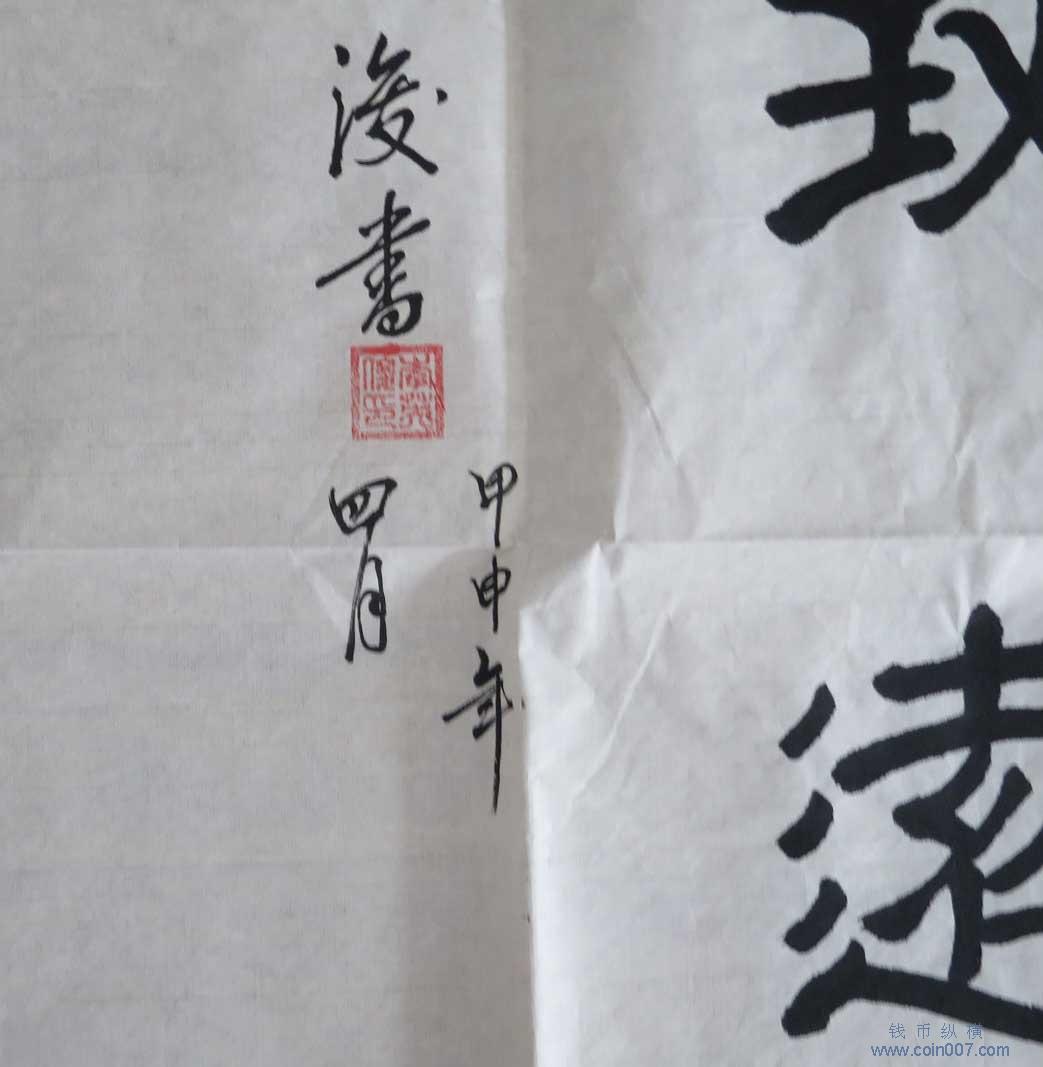 遠
甲申年
四月
浚書
钱币纵横
www.coin007.com